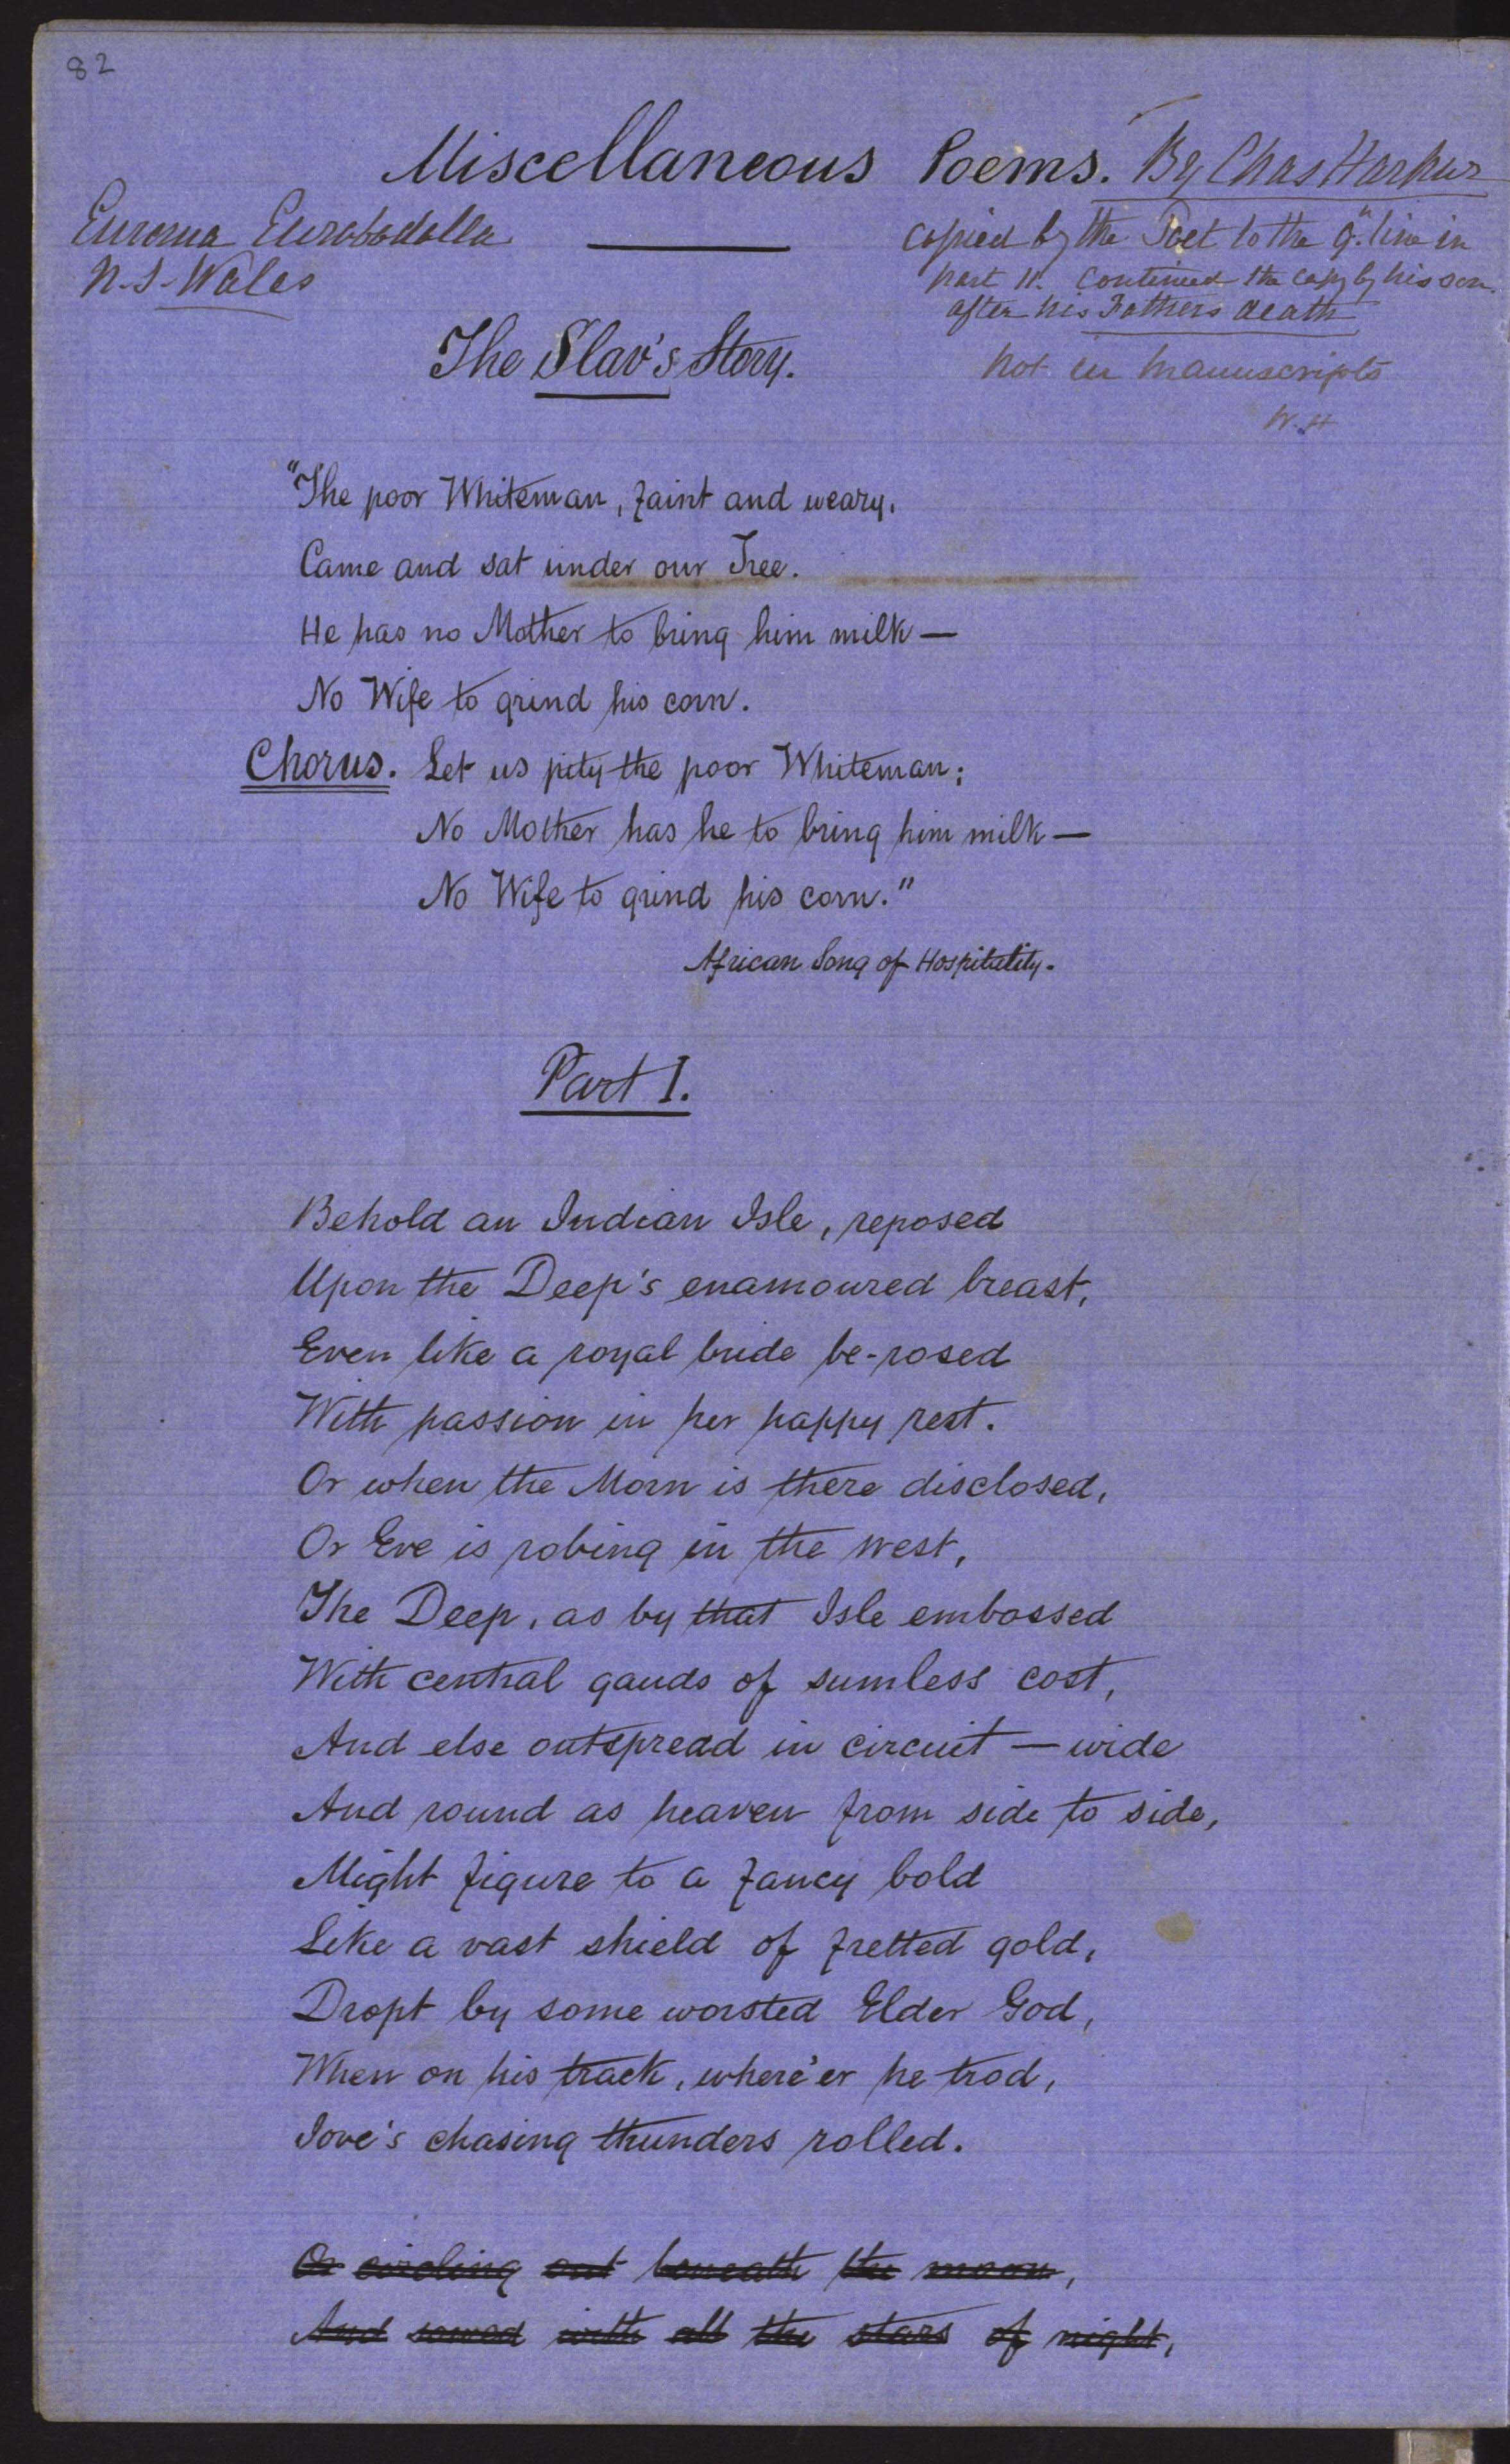 82
Miscellaneous Poems. By Chas Harpur
Euroma Eurobodalla
N. S. Wales
copied by the Poet to the 9" line in
part II. Continued the copy by his son.
after his Fathers death
Not in Manuscripts
W. H
The Slav's Story.
"The poor Whiteman, faint and weary,
Came and sat under our Tree.
He has no Mother to bring him milk—
No Wife to grind his corn.
Chorus. Let us pity the poor Whiteman;
No Mother has he to bring him milk—
No Wife to grind his corn."
African Song of Hospitality.
Part I.
Behold an Indian Isle, reposed
Upon the Deep's enamoured breast,
Even like a royal bride be-rosed
With passion in her happy rest.
Or when the Morn is there disclosed,
Or Eve is robing in the west,
The Deep, as by that Isle embossed
With central gauds of sumless cost,
And else outspread in circuit — wide
And round as heaven from side to side,
Might figure to a fancy bold
Like a vast shield of fretted gold,
Dropt by some worsted Elder God,
When on his track, where'er he trod,
Jove's chasing thunders rolled.
Or circling out beneath the moon,
And sowed with all the stars of night,